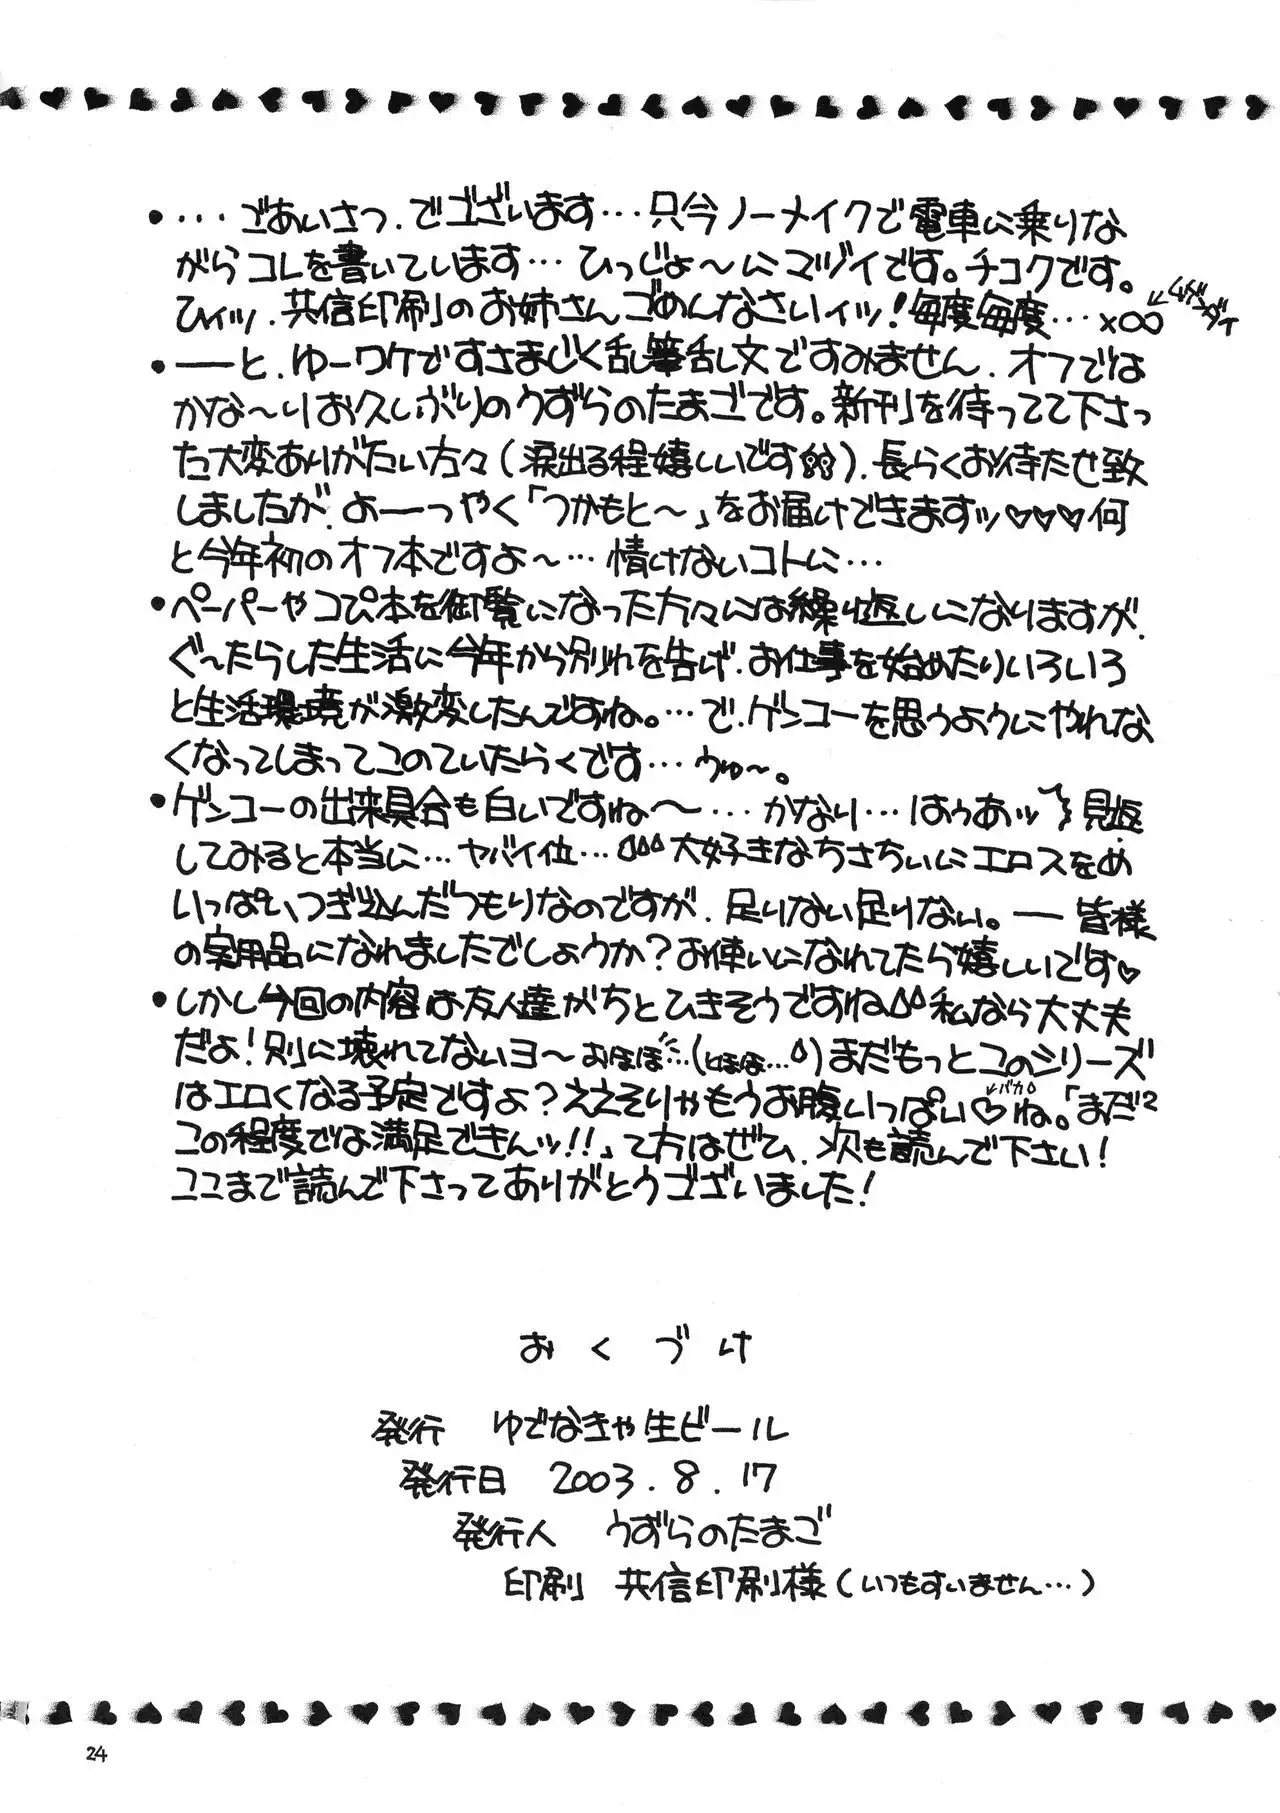 ・・・・ごあいさつ.でゴざいます…只今ノーメイクで電車に乗りな
がらコレを書いています…ひっじょ〜にマヅイです。チコクです。
ひィッ.共信印刷のお姉さんごめんなさいィッ!毎度毎度…×∞←ムゲンダイ
・――と.ゆーワケですさまじく乱筆乱文ですみません.オフでは
かな〜りお久しぶりのうずらのたまごです。新刊を待ってて下さっ
た大変ありがたい方々(涙出る程嬉しいです).長らくお待たせ致
しましたが.よーーっやく「つかもと〜」をお届けできますッ♡♡♡何
と今年初のオフ本ですよ〜…情けないコトに…
・ペーパーやコぴ本を御覧になった方々には繰り返しになりますが.
ぐ〜たらした生活に今年から別れを告げ.お仕事を始めたりいろいろ
と生活環境が激変したんですね。…で.ゲンコーを思うようにやれな
くなってしまってこのていたらくです…うゅ〜。
・ゲンコーの出来具合も白いですね〜…かなり…はぅあッ 見返
してみると本当に…ヤバイ位…大好きなちさちぃにエロスをめ
いっぱいつぎ込んだつもりなのですが.足りない足りない。――皆様
の実用品になれましたでしょうか?お使いになれてたら嬉しいです♡
・しかし今回の内容は友人達がちとひきそうですね 私なら大丈夫
だよ!別に壊れてないヨ〜おほほ…(とほほ…)まだもっとこのシリーズ
はエロくなる予定ですよ?ええそりゃもうお腹いっぱい♡←バカ ね。「まだ²
この程度では満足できんッ!!」て方はぜひ.次も読んで下さい!
ココまで読んで下さってありがとうゴざいました!
おくづけ
発行 ゆでなきゃ生ビール
発行日 2003.8.17
発行人 うずらのたまご
印刷 共信印刷様(いつもすいません…)
24